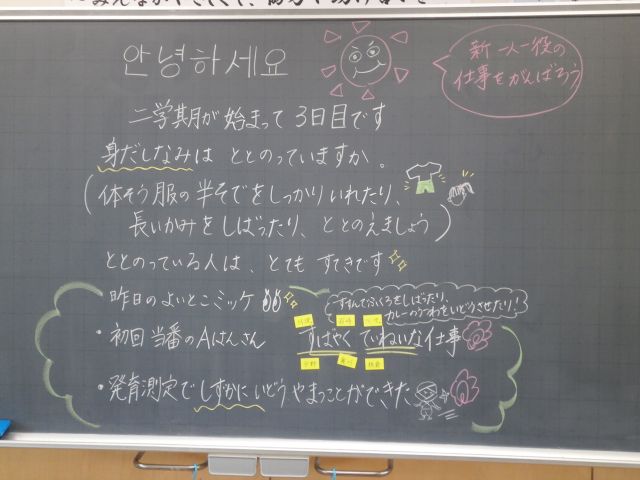 안녕하세요
新一人一役の
仕事をがんばろう
二学期が始まって3日目です
身だしなみは ととのっていますか。
(体そう服の半そでをしっかりいれたり、
長いかみをしばったり、ととのえましょう)
ととのっている人は、とても すてきです
昨日のよいとこミッケ
すすんでふくろをしばったり、
カレーのうつわをいどうさせたり!
・初回当番のAはんさん すばやく ていねいな仕事
・発育測定でしずかにいどうやまつことができた